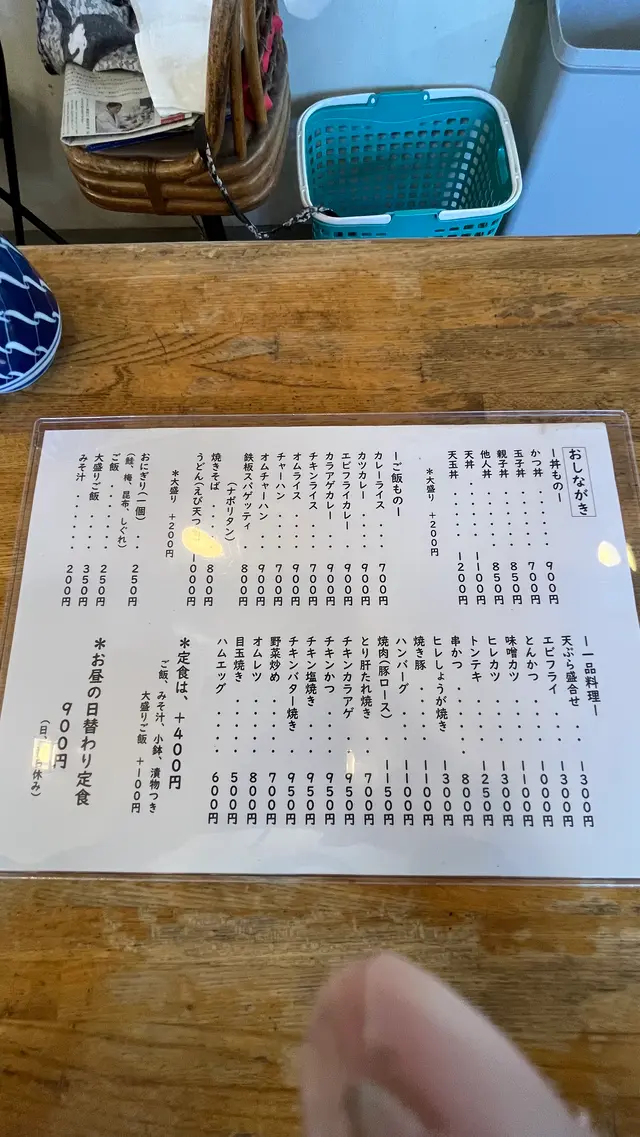 おしながき
ー丼ものー
かつ丼・・・・・900円
玉子丼・・・・・700円
親子丼・・・・・850円
他人丼・・・・・850円
天丼・・・・・一一00円
天玉丼・・・・・一200円
*大盛り +200円
ーご飯ものー
カレーライス・・・・700円
カツカレー・・・・900円
エビフライカレー・・900円
カラアゲカレー・・・900円
チキンライス・・・・700円
オムライス・・・・900円
チャーハン・・・・700円
オムチャーハン・・・900円
鉄板スパゲッティ・・800円
(ナポリタン)
焼きそば・・・・800円
うどん(えび天つ
一000円
*大盛り +200円
おにぎり(一個)・・・250円
(鮭、梅、昆布、しぐれ)
ご飯・・・・・250円
大盛りご飯・・・・350円
みそ汁・・・・・200円
ー一品料理ー
天ぷら盛合せ・・・一300円
エビフライ・・・・一000円
とんかつ・・・・一一00円
味噌カツ・・・・一300円
ヒレカツ・・・・一250円
トンテキ・・・・一300円
串かつ・・・・・800円
ヒレしょうが焼き・・一300円
焼き豚・・・・・一一00円
ハンバーグ・・・・一一00円
焼肉(豚ロース)・・・一一50円
とり肝たれ焼き・・・700円
チキンカラアゲ・・・950円
チキンかつ・・・・950円
チキン塩焼き・・・950円
チキンバター焼き・・950円
野菜炒め・・・・700円
オムレツ・・・・800円
目玉焼き・・・・500円
ハムエッグ・・・・600円
*定食は、+400円
ご飯、みそ汁、小鉢、漬物つき
大盛りご飯 +一00円
*お昼の日替わり定食
900円
(日、
休み)